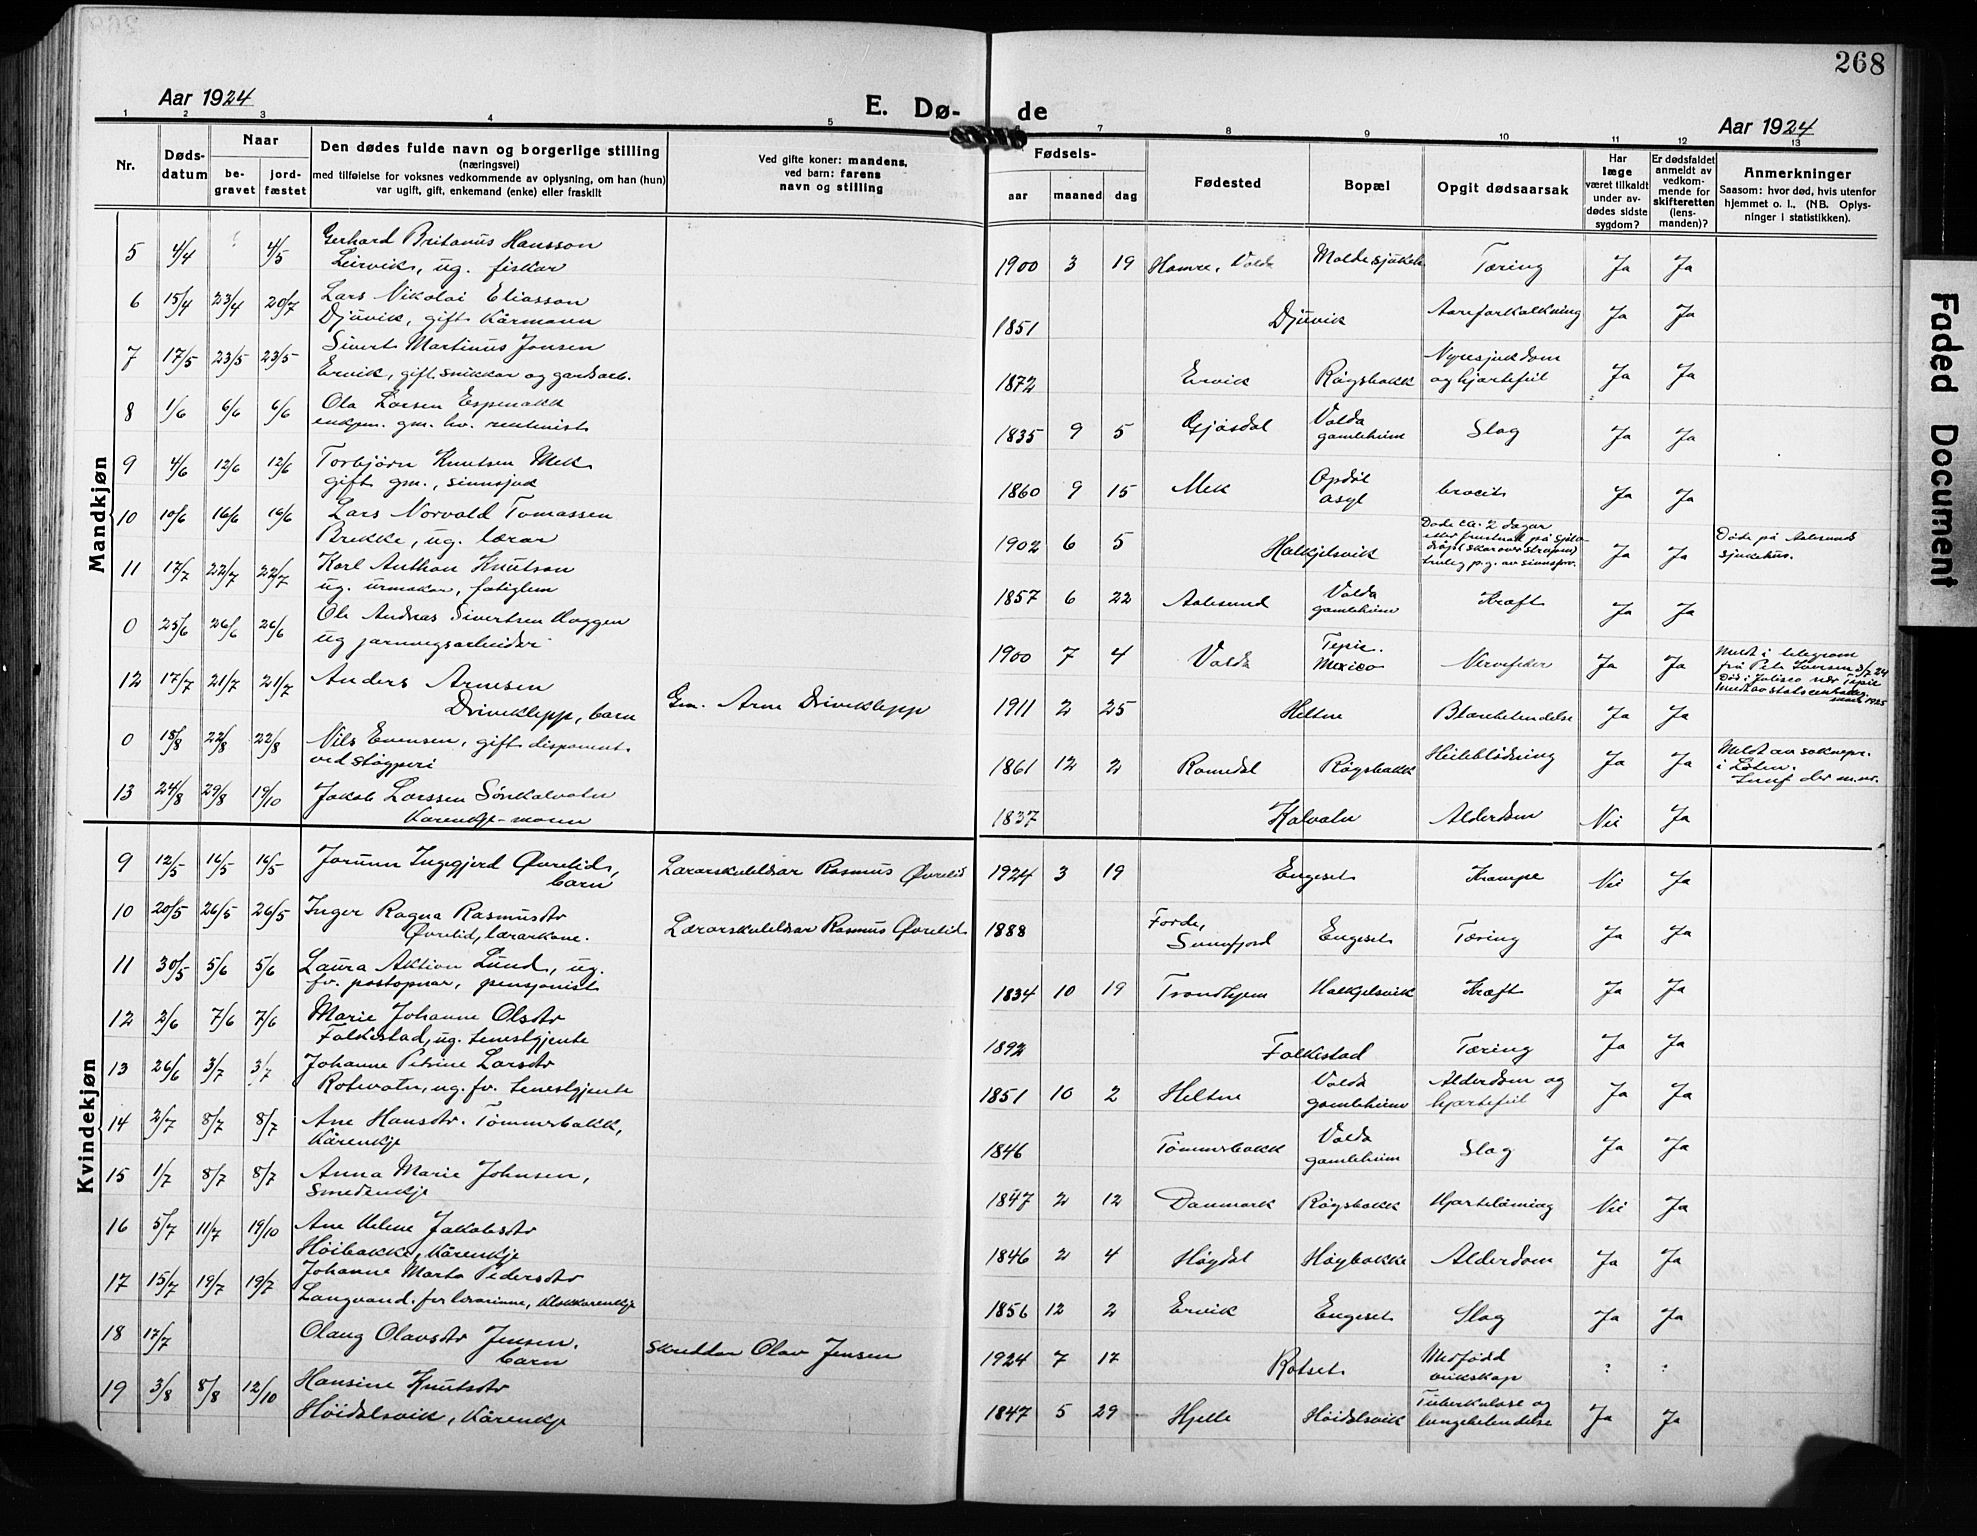 268
Aar 1924
E. Dø- de
Aar 1924
1 2 3 4 5 7 8 9 10 11 12 13
Nr.
Døds-
datum
Naar
be-
gravet
jord-
fæstet
Den dødes fulde navn og borgerlige stilling
(næringsvei)
med tilføielse for voksnes vedkommende av oplysning, om han (hun)
var ugift, gift, enkemand (enke) eller fraskilt
Ved gifte koner: mandens,
ved barn: farens
navn og stilling
Fødsels-
aar maaned dag
Fødested
Bopæl
Opgit dødsaarsak
Har
læge
været tilkaldt
under av-
dødes sidste
sygdom?
Er dødsfaldet
anmeldt av
vedkom-
mende for
skifteretten
(lens-
manden)?
Anmerkninger
Saasom: hvor død, hvis utenfor
hjemmet o. l., (NB. Oplys-
ninger i statistikken).
Mandkjøn
5 4/4 ? 4/5 Gerhard Britanus Hansson
Leirvik, ug. fiskar
1900 3 19 Hamre, Volda Molde sjukeh. Tæring Ja Ja
6 15/4 23/4 20/7 Lars Nikolai Eliasson
Djuvik, gift kårmann
1851 Djuvik Aareforkalkning Ja Ja
7 17/5 23/5 23/5 Sivert Martinus Jonsen
Ervik, gift snikkar og gardsarb.
1872 Ervik Røysbakk Nyresjukdom
og hjartefeil Ja Ja
8 1/6 6/6 6/6 Ola Larsen Espenakk
enkjem. gm. hv. rentenist
1835 9 5 Gjøsdal Volda
gamleheim Slag Ja Ja
9 4/6 12/6 12/6 Torbjørn Knutsen Mek
gift gm., sinnsjuk
1860 9 15 Mek Opdøl
asyl Ja Ja
10 10/6 16/6 16/6 Lars Norvald Tomassen
Brekke, ug. lærar
1902 6 5 Halkjelsvik Døde ca. 2 dagar
Ja Ja Døde på Aalesunds
sjukehus.
11 17/7 22/7 22/7 Karl Anthon Knutson
ug. urmakar, fatiglem
1857 6 22 Aalesund Volda
gamleheim Kræft Ja Ja
0 25/6 26/6 26/6 Ole Andreas Sivertsen Haggen
ug jarnvegsarbeider
1900 7 4 Volda Tepic.
Mexico Nervefeber Ja Ja Meldt i telegram
12 17/7 21/7 21/7 Anders Arnesen
Driveklepp, barn
Gm. Arne Driveklepp
1911 2 25 Heltne Blærebetendelse Ja Ja
0 18/8 22/8 22/8 Nils Evensen, gift disponent
ved støyperi
1861 12 2 Romedal Røysbakk Heileblødning Ja Ja Meldt av soknepr.
i Løten.
13 24/8 29/8 19/10 Jakob Larssen Sørekalvatn
Kårenkje-mann
1837 Kalvatn Alderdom Nei Ja
Kvindekjøn
9 12/5 16/5 16/5 Jorunn Ingegjerd Øvrelid,
barn
Lærarskuleldsar Rasmus Øvrelid
1924 3 19 Engeset Krampe Nei Ja
10 20/5 26/5 26/5 Inger Ragna Rasmusdtr
Øvrelid, lærarkone.
Lærarskuleldsar Rasmus Øvrelid
1888 Førde,
Sunnfjord Engeset Tæring Ja Ja
11 30/5 5/6 5/6 Laura Aktion Lund, ug.
fv. postopnar, pensjonist
1834 10 19 Trondhjem Halkjelsvik Kræft Ja Ja
12 2/6 7/6 7/6 Marie Johanne Olsdtr
Folkestad, ug. tenestgjente
1892 Folkestad Tæring Ja Ja
13 26/6 3/7 3/7 Johanne Petrine Larsdtr
Rotevatn, ug. fv. tenestgjente
1851 10 2 Heltne Volda
gamleheim Alderdom og
hjartefeil Ja Ja
14 2/7 8/7 8/7 Ane Hansdtr. Tømmerbakk,
Kårenkje
1846 Tømmerbakk Volda
gamleheim Slag Ja Ja
15 1/7 8/7 8/7 Anna Marie Johnsen,
Smedenkje
1847 2 12 Danmark Røysbakk Hjartelamiag Nei Ja
16 5/7 11/7 19/10 Ane Helene Jakobsdtr
Höibakke, Kårenkje
1846 2 4 Høydal Høybakke Alderdom Ja Ja
17 15/7 19/7 19/7 Johanne Marta Pedersdtr
Langvand. for lærarinne, klokkarenkje
1856 12 2 Ervik Engeset Slag Ja Ja
18 17/7 Olaug Olavsdtr Jensen.
barn
Skreddar Olav Jensen
1924 7 17 Rotset Medfødd
veikskap ? ?
19 3/8 8/8 12/10 Hansine Knutsdtr
Höidalsvik, Kårenkje
1847 5 29 Hjelle Höidalsvik Tuberkulose og
lungebetendelse Ja Ja
Faded Document